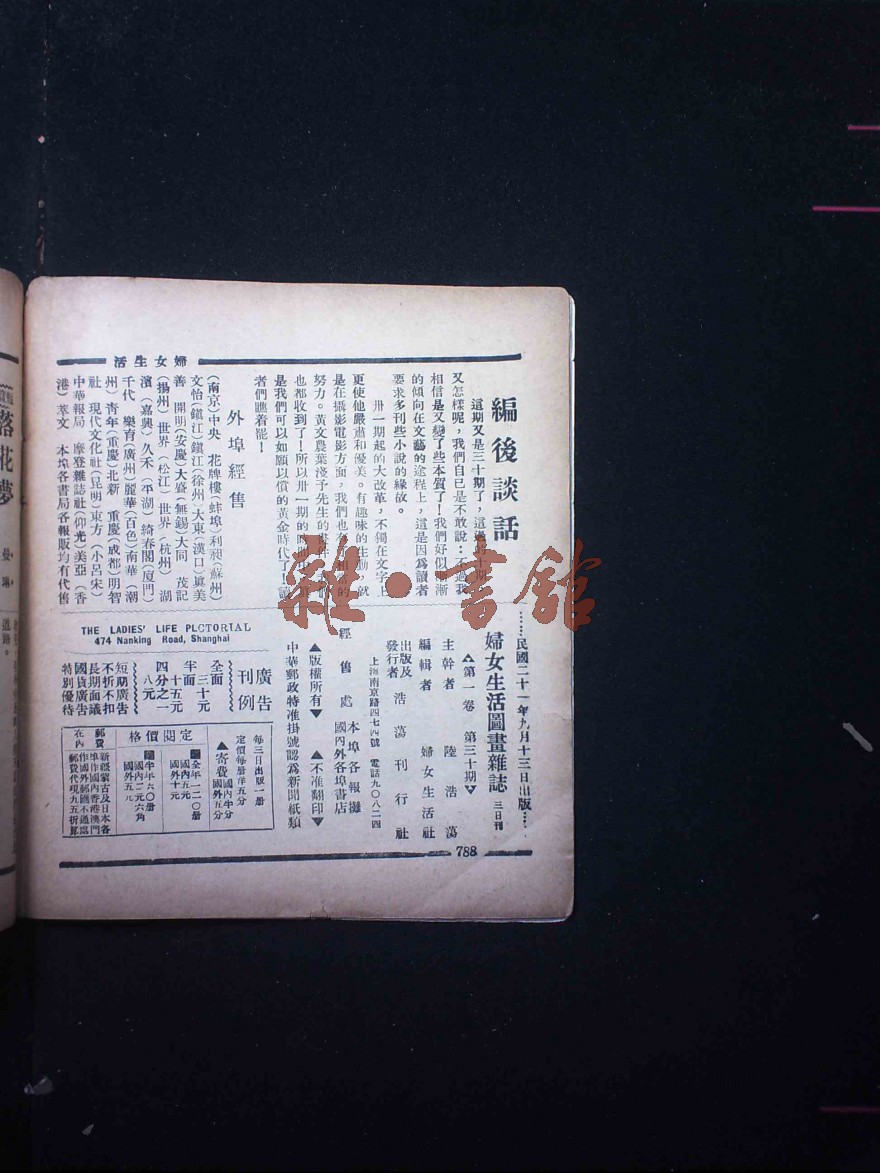 婦女生活
編後談話
這期又是三十期了，這過的十期
又怎樣呢，我們自已是不敢說：不過我
相信是又變了些本質了！我們好似漸漸
的傾向在文藝的途程上，這是因爲讀者
要求多刊些小說的緣故。
卅一期起的大改革，不獨在文字上
更使他嚴肅和優美。有趣味的生動，就
是在攝影電影方面，我們也
努力。黃文農葉淺予先生的畫件
也都收到了！所以卅一期的
是我們可以如願以償的黃金時代了！讀
者們瞧着罷！
外埠經售
(南京)中央 花牌樓(蚌埠)利昶(蘇州)
文怡(鎭江)鎭江(徐州)大東(漢口)眞美
善 開明(安慶)大盛(無錫)大同 茂記
(揚州)世界(松江)世界(杭州) 湖
濱(嘉興)久禾(平湖)綺春閣(厦門)
千代 樂育(廣州)麗華(百色)南華(潮
州)青年(重慶)北新 重慶(成都)明智
社 現代文化社(昆明)東方(小呂宋)
中華報局 摩登雜誌社(仰光)美亞(香
港)萃文 本埠各書局各報販均有代售
……民國二十一年九月十三日出版……
婦女生活圖畫雜誌 三日刊
▲第一卷 第三十期▼
主幹者 陸浩蕩
編輯者 婦女生活社
出版及發行者 浩蕩刊行社
上海南京路四七四號 電話九〇八二四
經售處 本埠各報攤
國內外各埠書店
▲版權所有▼ ▲不准翻印▼
中華郵政特准掛號認爲新聞紙類
THE LADIES' LIFE PLCTORIAL
474 Nanking Road, Shanghai
廣告刊例
全面 三十元
半面 十五元
四分之一 八元
短期廣告
不折不扣
長期面議
國貨廣告
特別優待
每三日出版一册
定價每册洋五分
▲寄費 國內半分 國外五分
定閱價格
全年一二〇册
國內五元
國外十元
半年六〇册
國內二元六角
國外五元
郵費在內
新疆蒙古及日本各
埠作國內香港澳門
作國外郵匯不通處
郵費代現九五折算
788
落花夢
道路。
雜·書館